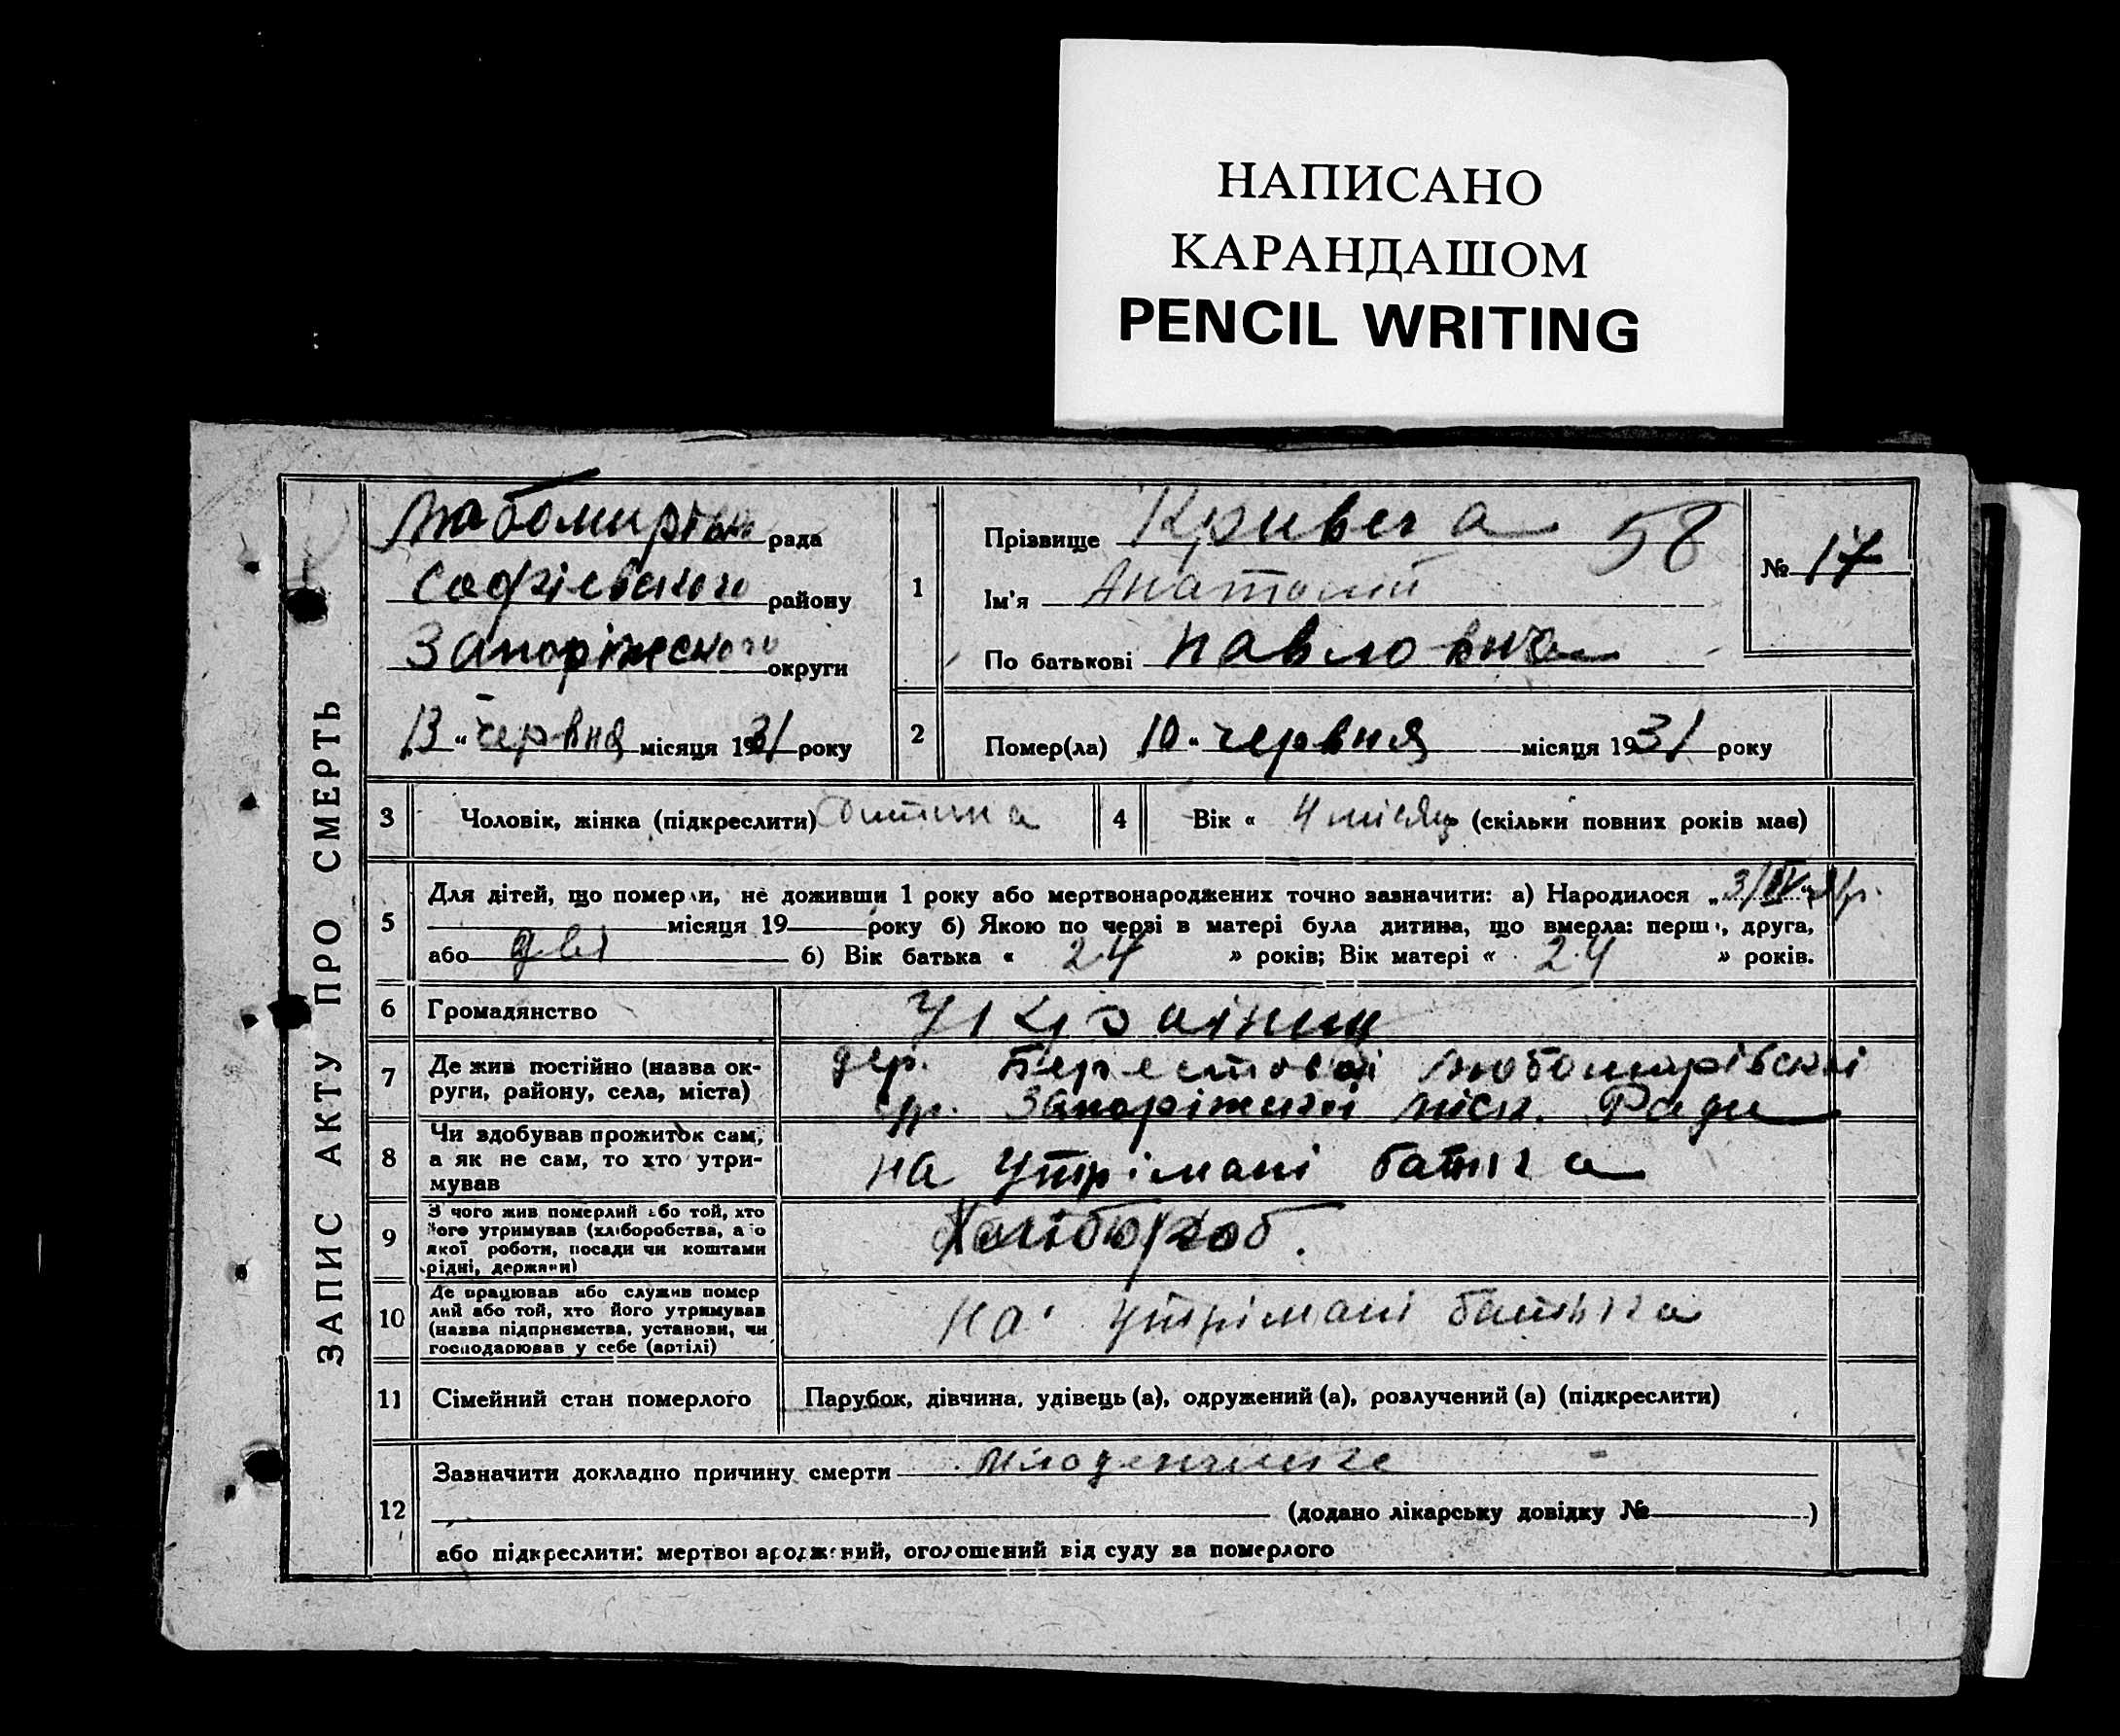 НАПИСАНО
КАРАНДАШОМ
PENCIL WRITING
ЗАПИС АКТУ ПРО СМЕРТЬ
рада
Софіевского району
Запоріжского округи
13 " червня місяця 1931 року
1
Прізвище 58
Ім'я Анатолий
По батькові Павлович
№ 17
2
Помер(ла) 10 " червня місяця 1931 року
3 Чоловік, жінка (підкреслити) дитина
4 Вік « 4 місяц (скільки повних років має)
5
Для дітей, що померли, не доживши 1 року або мертвонароджених точно зазначити: а) Народилося „
місяця 19 року б) Якою по черзі в матері була дитина, що вмерла: перша, друга,
або дві б) Вік батька « 24 » років; Вік матері « 24 » років.
6 Громадянство Українец
7 Де жив постійно (назва ок-
руги, району, села, міста)
дер. Берестовой Любомирівскі
с/р. Запоріжскої міск. Ради
8
Чи здобував прожиток сам,
а як не сам, то хто утри-
мував
на утрімані батька
9
З чого жив померлий або той, хто
його утримував (хліборобства, або
якої роботи, посади чи коштами
рідні, держави)
Хлібороб.
10
Де працював або служив помер
лий або той, хто його утримував
(назва підприємства, установи, чи
господарював у себе (артілі)
на утрімані батька
11 Сімейний стан померлого Парубок, дівчина, удівець (а), одружений (а), розлучений (а) (підкреслити)
12
Зазначити докладно причину смерти
(додано лікарську довідку № )
або підкреслити: мертвонароджений, оголошений від суду за померлого